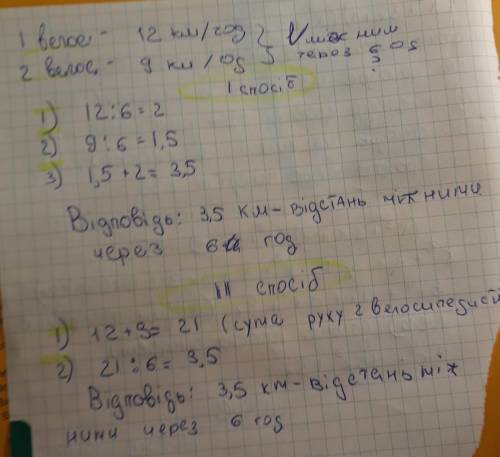 1 велос - 12 км/год
2 велос - 9 км/год
між ними
через 6 год
?
I спосіб
1) 12:6=2
2) 9:6=1,5
3) 1,5+2=3,5
Відповідь: 3,5 км-відстань між ними
через 6 год
II спосіб
1) 12+9=21 (сума руху 2 велосипедистів
2) 21:6=3,5
Відповідь: 3,5 км-відстань між
ними через 6 год